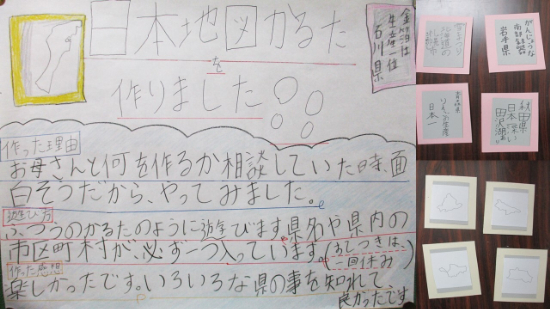 日本地図かるた
を
作りました!!
石川県
作った理由
お母さんと何を作るか相談していた時、面
白そうだから、やってみました。
遊び方
ふつうのかるたのように遊びます。県名や県内の
市区町村が、必ず一つ入っています。(おてつきは、
一回休み)
作った感想
楽しかったです。いろいろな県の事を知れて
良かったです
がんじょうな
南部鉄器
岩手県
りんご生産
日本一
秋田県
日本一深い
田沢湖